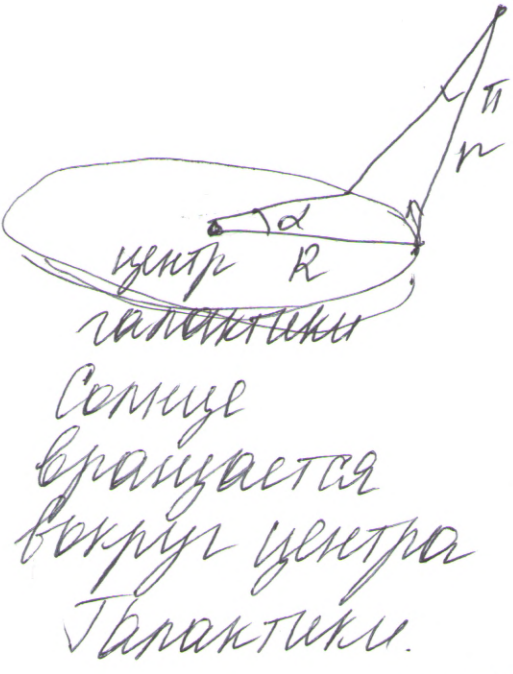 π
r
α
центр R
галактики
Солнце
вращается
вокруг центра
Галактики.